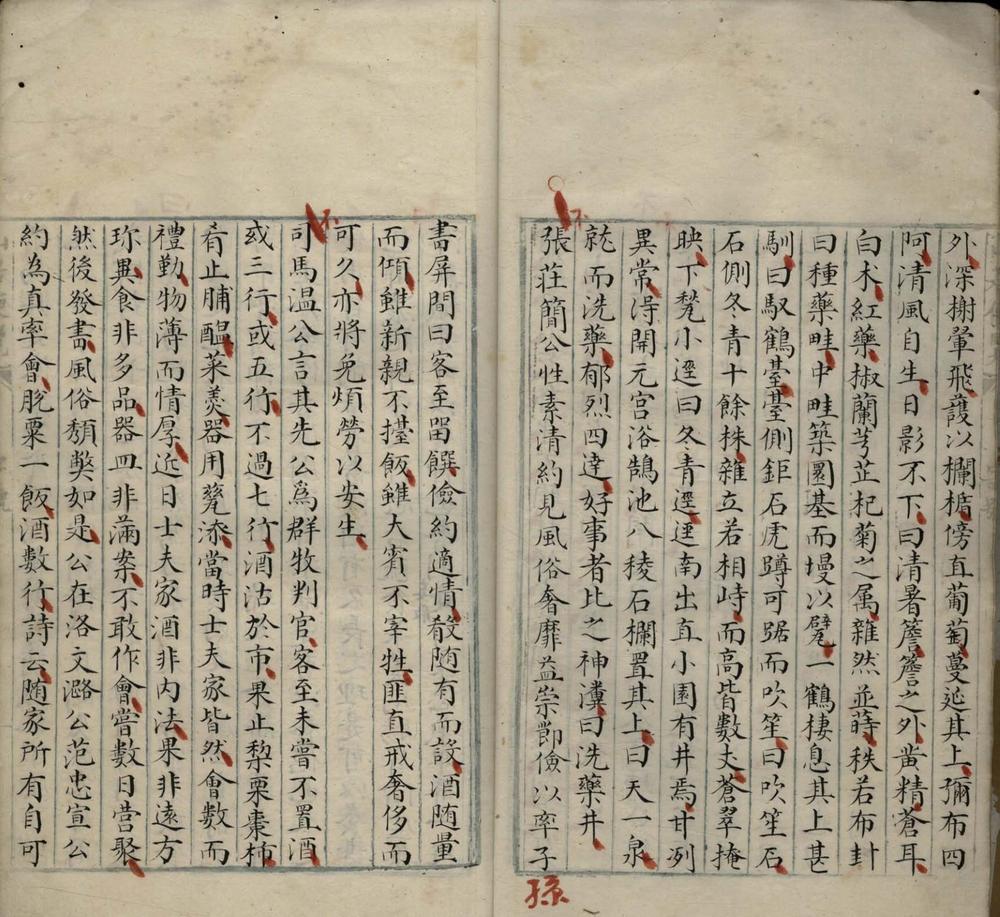 外深榭翬飛護以欄楯傍直葡萄蔓延其上彌布四
阿清風自生日影不下曰清暑簷簷之外黄精蒼耳
白术紅藥椒蘭芎芷杞菊之属雜然並蒔秩若布卦
曰種藥畦中畦築圜基而墁以甓一鶴棲息其上甚
馴曰馭鶴臺臺側鉅石虎蹲可踞而吹笙曰吹笙石
石側冬青十餘株雜立若相峙而高皆數丈蒼翠掩
映下甃小逕曰冬青逕逕南出直小園有井焉甘冽
異常淂開元宫浴鵠池八稜石欄置其上曰天一泉
就而洗藥郁烈四逹好事者比之神瀵曰洗藥井
張莊簡公性素清約見風俗奢靡益崇節儉以率子
孫
書屏間曰客至留饌儉約適情殽随有而設酒随量
而傾雖新親不擡飯雖大賓不宰牲匪直戒奢侈而
可久亦將免煩勞以安生
不
司馬温公言其先公爲群牧判官客至未嘗不置酒
或三行或五行不過七行酒沽於市果止梨栗棗柿
肴止脯醢菜羹器用甆漆當時士夫家皆然會數而
禮勤物薄而情厚近日士夫家酒非内法果非遠方
珎異食非多品器皿非滿案不敢作會嘗數日營聚
然後發書風俗頽獘如是公在洛文潞公范忠宣公
約為真率會脱粟一飯酒數行詩云随家所有自可